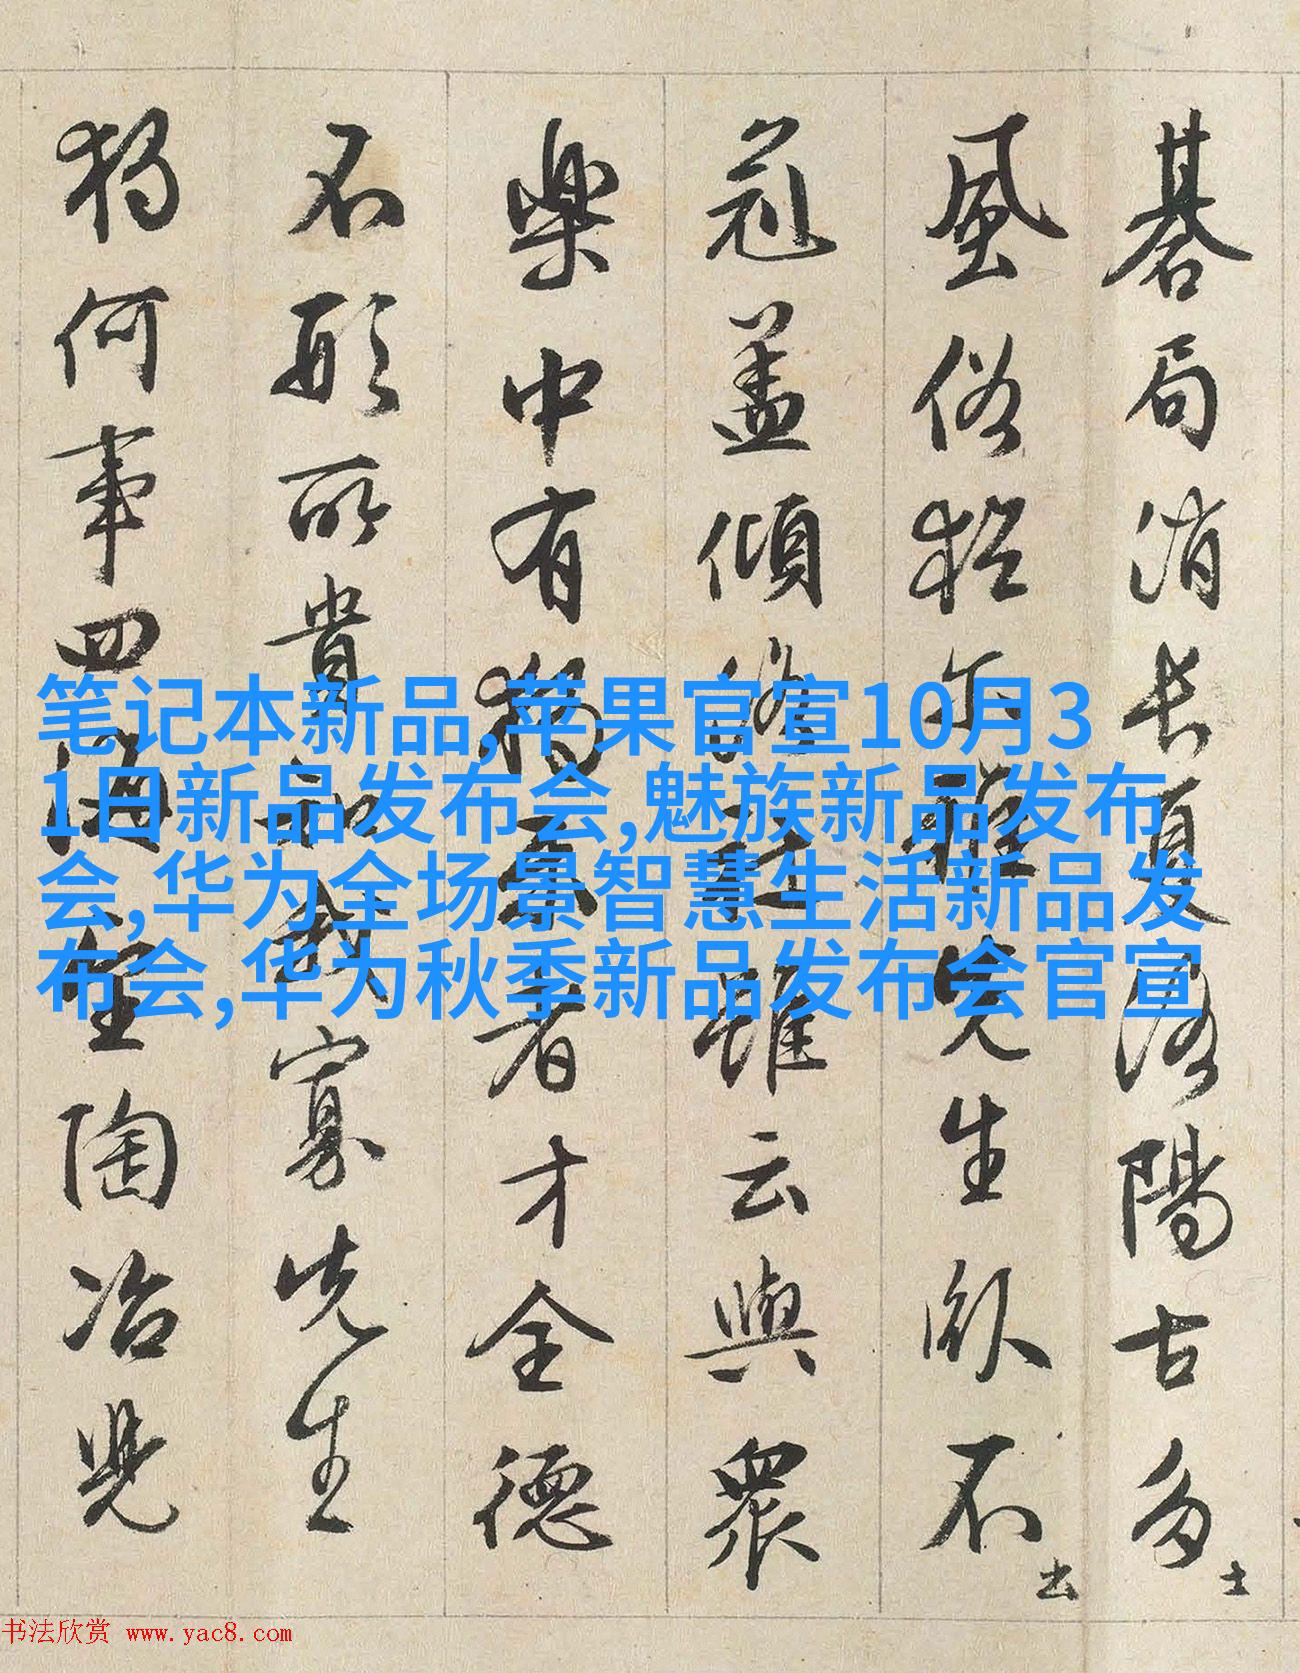 碁局消長夏洛陽古多士
風俗猶尓雅先生卧不出
冠盖傾洛社雖云與衆
樂中有獨樂者才全德
不形所貴知我寡先生
獨何事四海望陶冶兒
笔记本新品,苹果官宣10月3
1日新品发布会,魅族新品发布
会,华为全场景智慧生活新品发
布会,华为秋季新品发布会官宣
书法欣赏 www.yac8.com